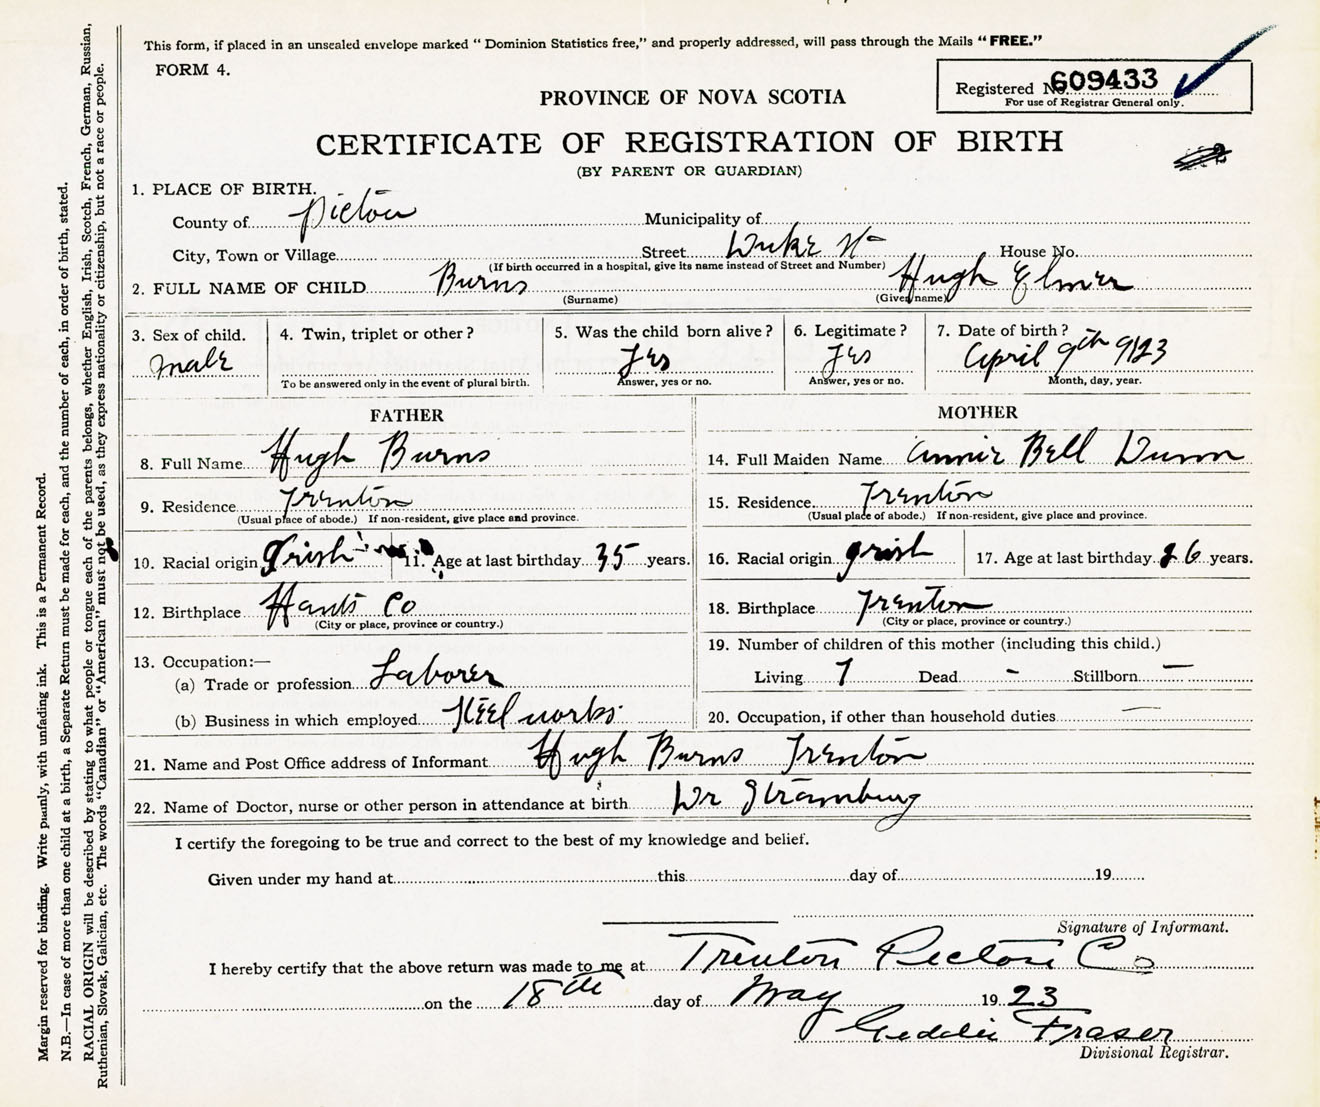 This form, if placed in an unsealed envelope marked “ Dominion Statistics free,” and properly addressed, will pass through the Mails “ FREE.”
FORM 4.
Registered No. 609433
For use of Registrar General only.
PROVINCE OF NOVA SCOTIA
CERTIFICATE OF REGISTRATION OF BIRTH
(BY PARENT OR GUARDIAN)
1. PLACE OF BIRTH.
County of Pictou Municipality of
City, Town or Village Street Duke St House No.
(If birth occurred in a hospital, give its name instead of Street and Number)
2. FULL NAME OF CHILD Burns Hugh Elmer
(Surname) (Given name)
3. Sex of child. 4. Twin, triplet or other ? 5. Was the child born alive ? 6. Legitimate ? 7. Date of birth ?
male Yes Yes April 9th 9123
To be answered only in the event of plural birth. Answer, yes or no. Answer, yes or no. Month, day, year.
FATHER MOTHER
8. Full Name Hugh Burns 14. Full Maiden Name Annie Bell Dunn
9. Residence Trenton 15. Residence Trenton
(Usual place of abode.) If non-resident, give place and province. (Usual place of abode.) If non-resident, give place and province.
10. Racial origin Irish 11. Age at last birthday 35 years. 16. Racial origin Irish 17. Age at last birthday 26 years.
12. Birthplace Hants Co 18. Birthplace Trenton
(City or place, province or country.) (City or place, province or country.)
19. Number of children of this mother (including this child.)
13. Occupation:—
(a) Trade or profession Laborer Living 7 Dead - Stillborn —
(b) Business in which employed Steel works 20. Occupation, if other than household duties —
21. Name and Post Office address of Informant Hugh Burns Trenton
22. Name of Doctor, nurse or other person in attendance at birth Dr
I certify the foregoing to be true and correct to the best of my knowledge and belief.
Given under my hand at this day of 19
Signature of Informant.
I hereby certify that the above return was made to me at Trenton Pictou Co
on the 18th day of May 19 23
Geddie Fraser
Divisional Registrar.
Margin reserved for binding. Write plainly, with unfading ink. This is a Permanent Record.
N.B.—In case of more than one child at a birth, a Separate Return must be made for each, and the number of each, in order of birth, stated.
RACIAL ORIGIN will be described by stating to what people or tongue each of the parents belongs, whether English, Irish, Scotch, French, German, Russian,
Ruthenian, Slovak, Galician, etc. The words “Canadian” or “American” must not be used, as they express nationality or citizenship, but not a race or people.